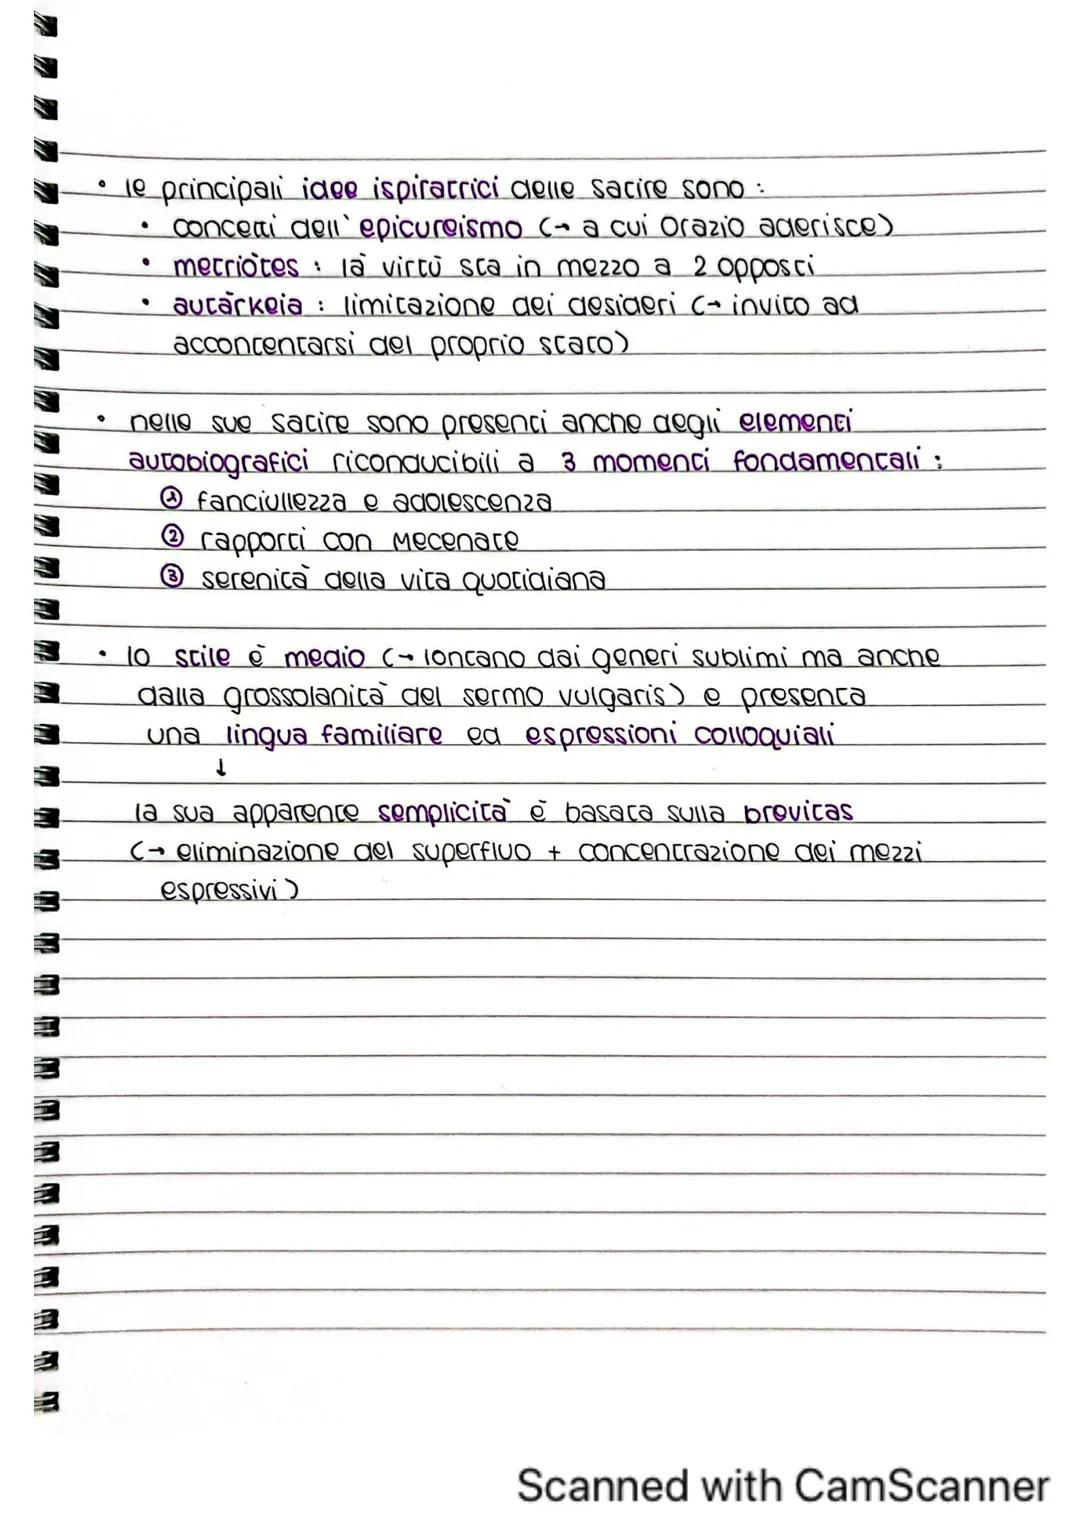 • le principali idee ispiratrici delle satire sono :
• concetti dell' epicureismo (→ a cui Orazio aderisce)
• metriòtes : la virtù sta in mezzo a 2 opposti
• autàrkeia : limitazione dei desideri (→ invito ad
accontentarsi del proprio stato)
• nelle sue satire sono presenti anche degli elementi
autobiografici riconducibili a 3 momenti fondamentali :
① fanciullezza e adolescenza
② rapporti con Mecenate
③ serenità della vita quotidiana
• lo stile è medio (→ lontano dai generi sublimi ma anche
dalla grossolanità del sermo vulgaris) e presenta
una lingua familiare ed espressioni colloquiali
↓
la sua apparente semplicità è basata sulla brevitas
(→ eliminazione del superfluo + concentrazione dei mezzi
espressivi)
Scanned with CamScanner